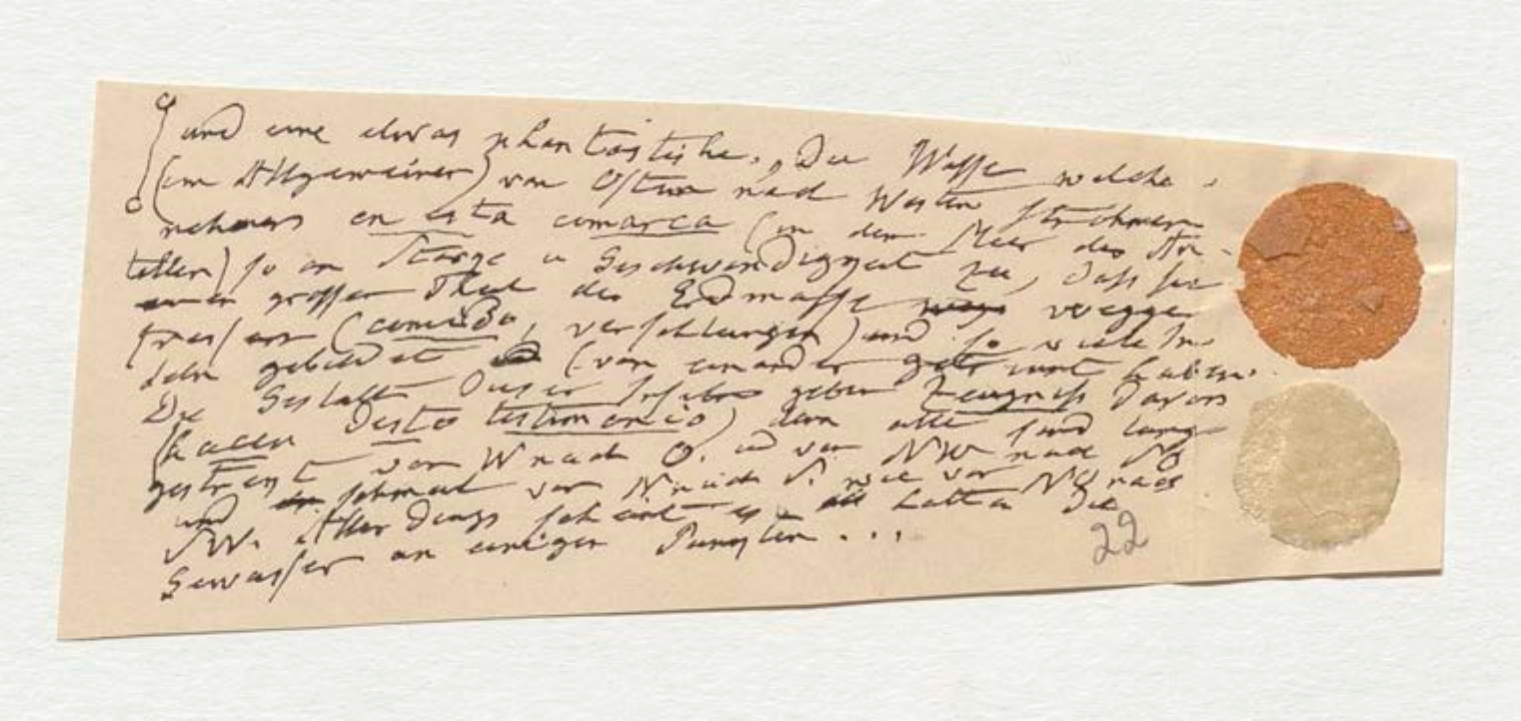 und eine etwas phantastische. „Die Wasser welche
(im Allgemeinen) von Osten nach Westen strohmen
nehmen en esta comarca (in dem Meer der An-
tillen) so an Starge u Geschwindiggeit zu, dass sie
einen grossen Theil der Erdmasse wegge
fressen (comido, verschlungen) und so viele In-
seln gebildet (von einander getrennt haben.
Die Gestalt dieser Inseln geben Zeugniss davon
(hacen desto testimonio) denn alle sind lang
gestrent von W nach O. und von NW nach SO
und schmal von N nach S. wie von NO nach
SW. Allerdings scheint es, hatten die
Gewasser an einigen Pungten ...
22